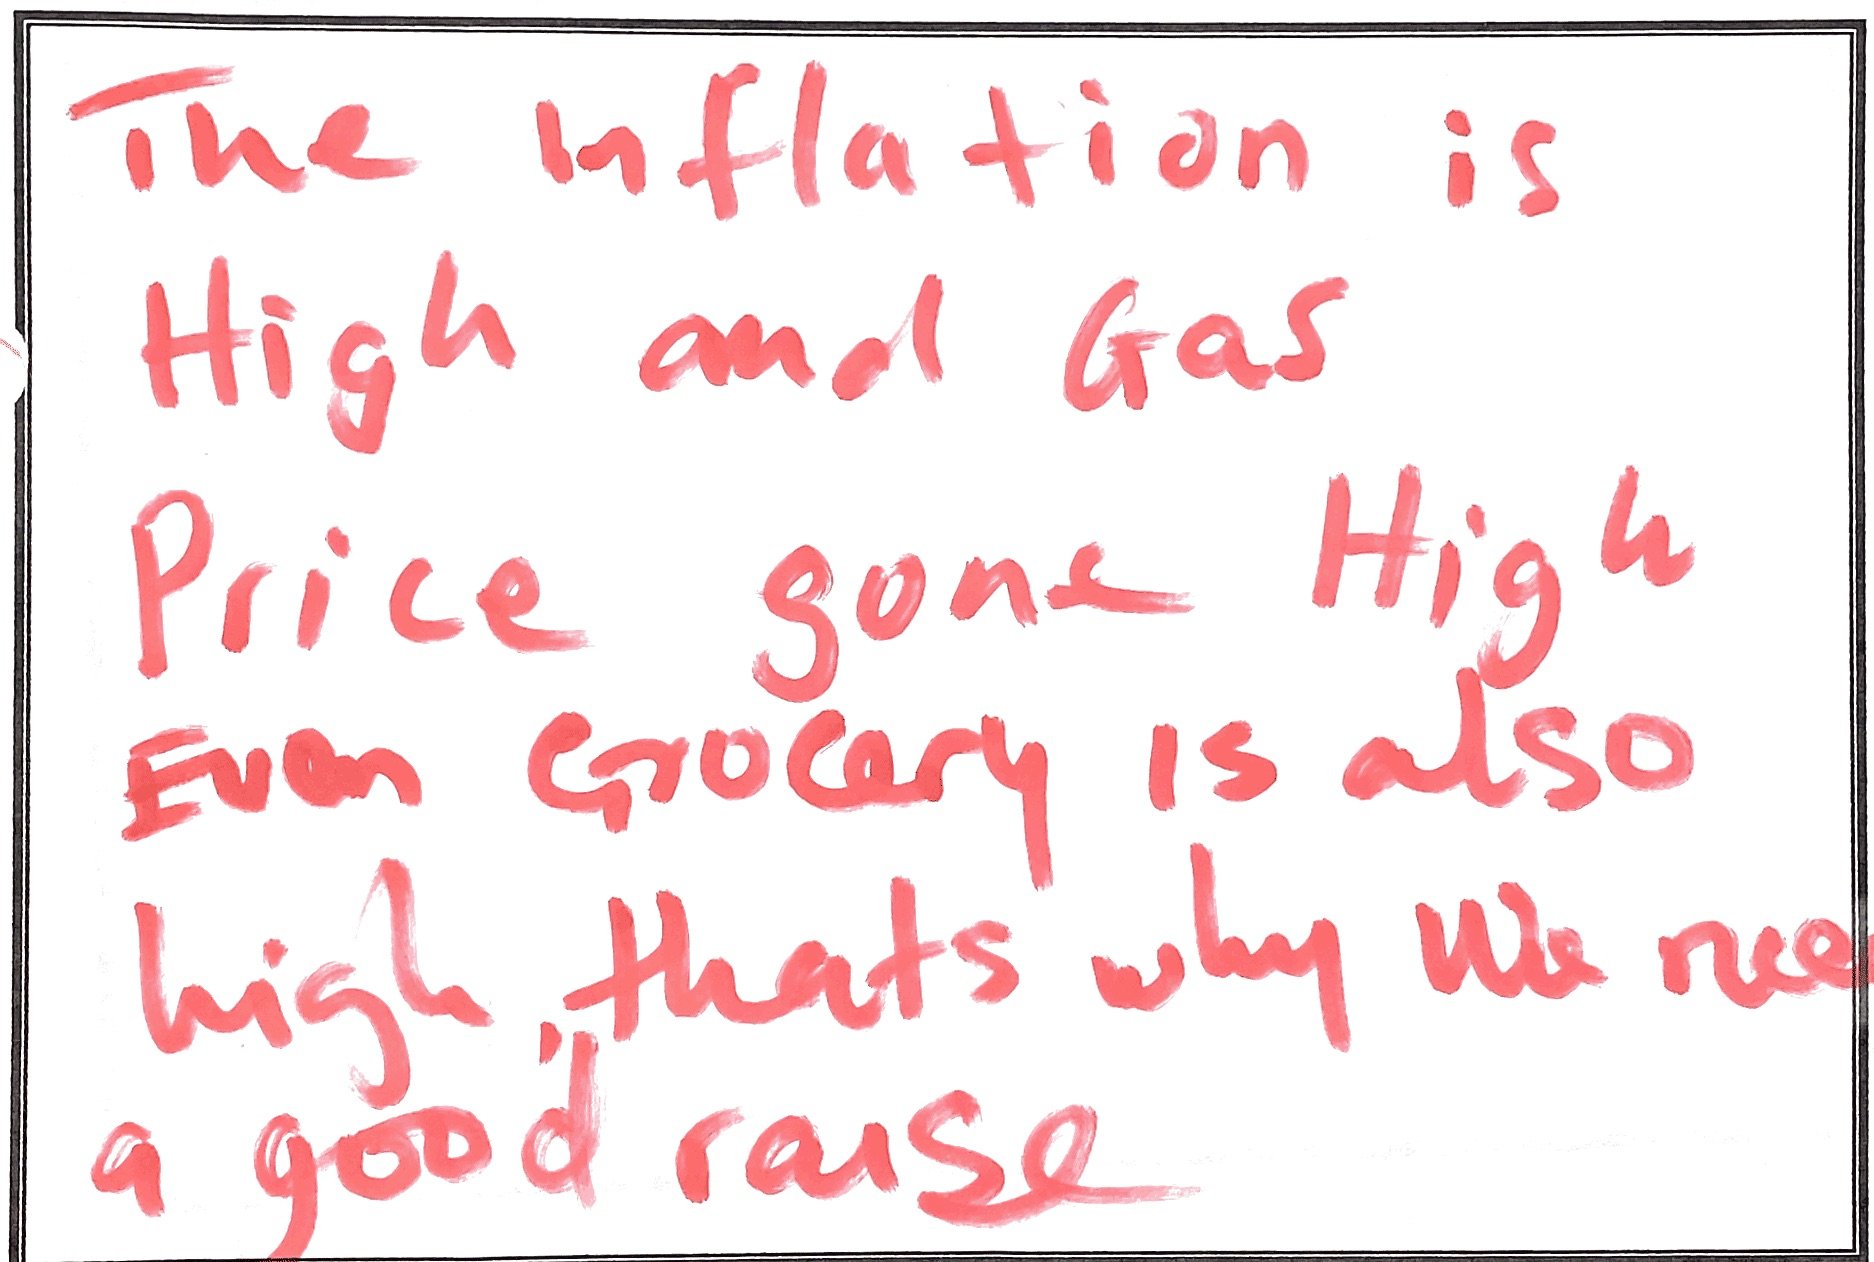 The Inflation is
High and Gas
Price gone High
Even Grocery is also
high, thats why We nee
a good raise